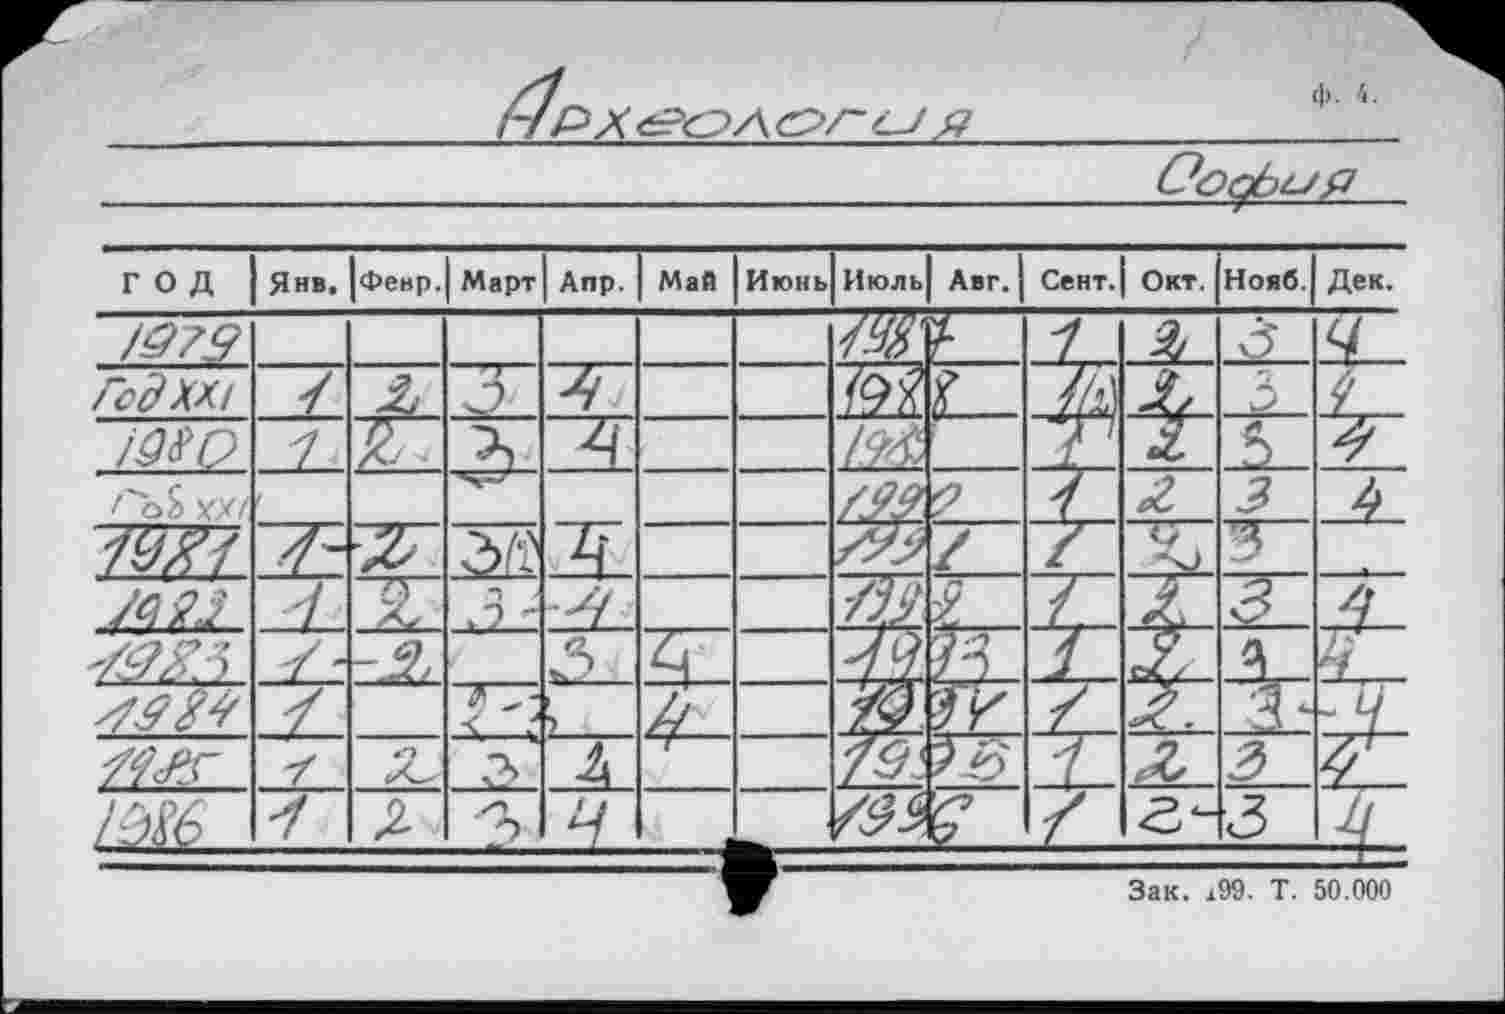 ф. 4.
Археология
София
ГОД Янв. Февр. Март Апр. Май Июнь Июль Авг. Сент. Окт. Нояб. Дек.
1979 1987 1 2 3 4
Год XXI 1 2 3 4 1988 1(2) 2 3 4
1980 1 2 3 4 1989 1 2 3 4
Год XXI 1990 1 2 3 4
1981 1-2 3(2) 4 1991 1 2 3
1982 1 2 3-4 1992 1 2 3 4
1983 1-2 3 4 1993 1 2 3 4
1984 1 2-3 4 1994 1 2. 3-4
1985 1 2 3 4 1995 1 2 3 4
1986 1 2 3 4 1996 1 2-3 4
Зак. 199. Т. 50.000